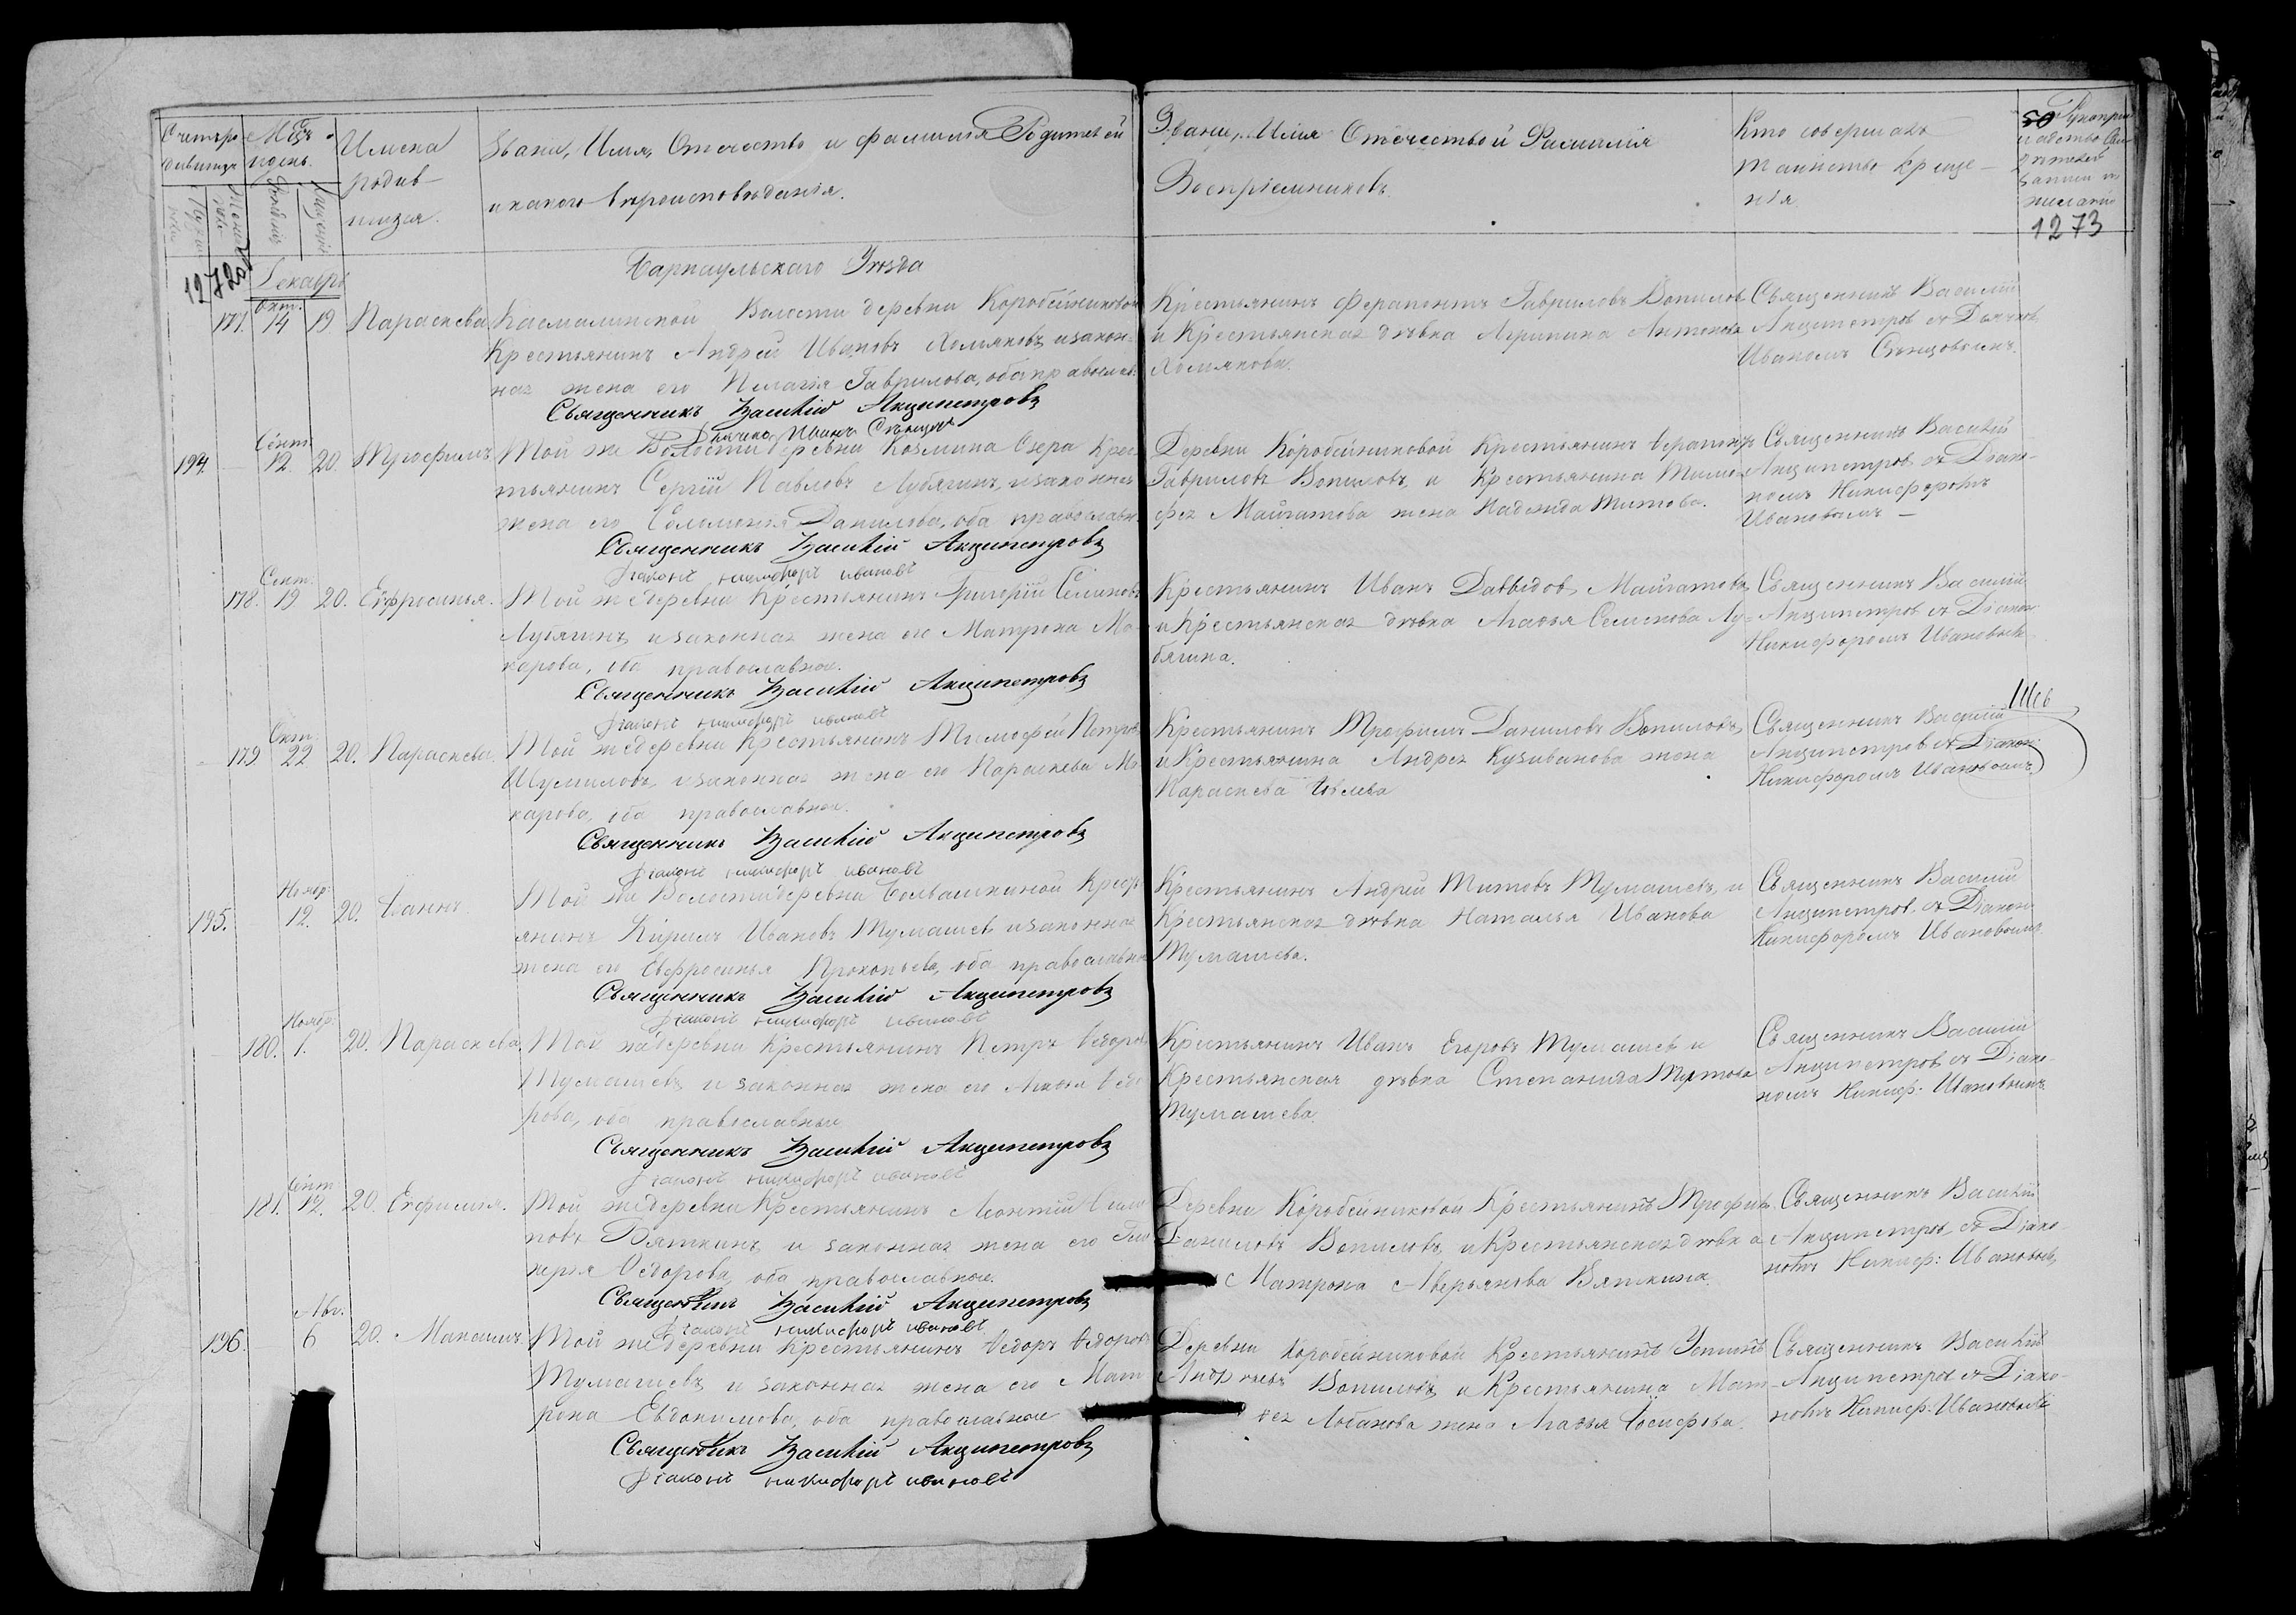 Счетъ ро-
дившихся
Мужеска
пола
Женска
пола
Мѣсяцъ
и день.
Рожденія
Крещенія
Имена
родив-
шихся.
Званіе, Имя, Отчество и фамилія Родителей
и какого вѣроисповѣданія.
Званіе, Имя Отечество и Фамилія
Воспріемниковъ.
Кто совершалъ
таинство креще-
нія
50
1273
1272об
Декабрь
Барнаульскаго Уѣзда
177. Окт. 14 19 Параскева
Касмалинской Волости деревни Коробейниковой
Крестьянинъ Андрей Ивановъ Хомяковъ, и закон-
ная жена его Пелагія Гаврилова, оба православ.
Священникъ Василій Акципетровъ
Дьячекъ Иванъ Сѣнцовъ
Крестьянинъ Ферапонтъ Гавриловъ Вопиловъ
и Крестьянская дѣвка Агрипина Антонова
Хомякова.
Священникъ Василій
Акципетровъ съ Дьячкомъ
Иваномъ Сѣнцовымъ.
194. Сент. 12 20. Трофимъ
Той же Волости деревни Козмина Озера Крес-
тьянинъ Сергій Павловъ Лубягинъ, и законная
жена его Соломонія Данилова, оба православн.
Священникъ Василій Акципетровъ
Діаконъ никифоръ ивановъ
Деревни Коробейниковой Крестьянинъ Ѳерапонтъ
Гавриловъ Вопиловъ, и Крестьянина Тимо-
фея Майгатова жена Надежда Титова.
Священникъ Василій
Акципетровъ съ Діако-
номъ Никифоромъ
Ивановымъ
178. Сент. 19 20. Евфросинья.
Той же деревни Крестьянинъ Григорій Семеновъ
Лубягинъ, и законная жена его Матрона Ма-
карова, оба православные.
Священникъ Василій Акципетровъ
Діаконъ никифоръ ивановъ
Крестьянинъ Иванъ Давыдовъ Майгатовъ,
и Крестьянская дѣвка Агаѳья Семенова Лу-
бягина.
Священникъ Василій
Акципетровъ съ Діакон.
Никифоромъ Ивановымъ
179. Окт. 22 20. Параскева.
Той же деревни Крестьянинъ Тимофей Петровъ
Шумиловъ, и законная жена его Параскева Ма-
карова, оба православные.
Священникъ Василій Акципетровъ
Діаконъ никифоръ ивановъ
Крестьянинъ Трофимъ Даниловъ Вопиловъ,
и Крестьянина Андрея Кузиванова жена
Параскева
Священникъ Василій
Акципетровъ съ Діакон.
Никифоромъ Ивановымъ
195. Ноябр. 12. 20. Іаннъ
Той же Волости деревни Болвашкиной Крест-
янинъ Кирилъ Ивановъ Тумашевъ и законная
жена его Евфросинья Прокопьева, оба православные
Священникъ Василій Акципетровъ
Діаконъ никифоръ ивановъ
Крестьянинъ Андрей Титовъ Тумашевъ, и
Крестьянская дѣвка Наталья Иванова
Тумашева.
Священникъ Василій
Акципетровъ съ Діакон.
Никифоромъ Ивановымъ
180. Ноябр. 1. 20. Параскева.
Той же деревни Крестьянинъ Петръ Ѳедоровъ
Тумашевъ, и законная жена его Ѳедо-
рова, оба православные
Священникъ Василій Акципетровъ
Діаконъ никифоръ ивановъ
Крестьянинъ Иванъ Егоровъ Тумашевъ и
Крестьянская дѣвка Степанида Титова
Тумашева.
Священникъ Василій
Акципетровъ съ Діако-
номъ Никиф: Ивановымъ
181. Сент. 12. 20. Евфимія.
Той же деревни Крестьянинъ Леонтій
повъ Вяткинъ, и законная жена его Гли-
керія Ѳедорова, оба православные.
Священникъ Василій Акципетровъ
Діаконъ никифоръ ивановъ
Деревни Коробейниковой Крестьянинъ Трофимъ
Даниловъ Вопиловъ, и Крестьянская дѣвка
Матрона Аверьянова Вяткина
Священникъ Василій
Акципетровъ съ Діако-
номъ Никиф: Ивановымъ
196. Авг. 6 20. Максимъ
Той же деревни Крестьянинъ Ѳедоръ Ѳедоровъ
Тумашевъ, и законная жена его Мат-
рона Евдокимова, оба православные
Священникъ Василій Акципетровъ
Діаконъ никифоръ ивановъ
Деревни Коробейниковой Крестьянинъ
Андреевъ Вопиловъ, и Крестьянина Мат-
ѳея Лобанова жена Агаѳья Іосифова.
Священникъ Василій
Акципетровъ съ Діако-
номъ Никиф: Ивановымъ